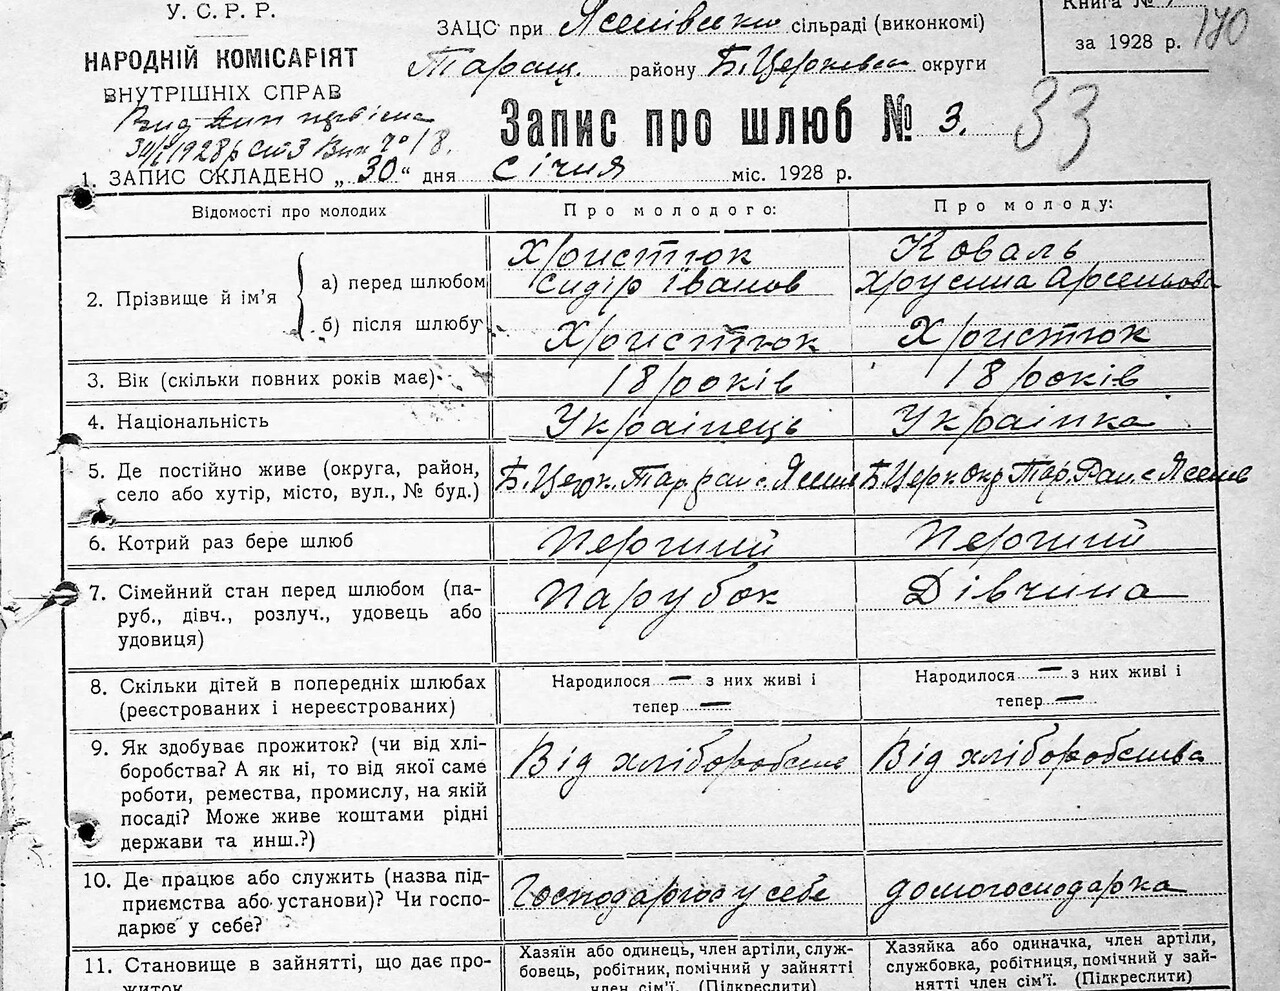 У. С. Р. Р.
НАРОДНІЙ КОМІСАРІЯТ
ВНУТРІШНІХ СПРАВ
ЗАЦС при Ясенівськ сільраді (виконкомі)
Таращ. району Б. Церковськ округи
Книга №
за 1928 р.
170
Запис про шлюб № 3.
33
1928 р
1. ЗАПИС СКЛАДЕНО „30“ дня січня міс. 1928 р.
Відомості про молодих
Про молодого:
Про молоду:
2. Прізвище й ім’я
а) перед шлюбом
Христюк
Сидір Іванов
Коваль
Хрусина Арсеньова
б) після шлюбу
Христюк
Христюк
3. Вік (скільки повних років має)
18 років
18 років
4. Національність
Українець
Українка
5. Де постійно живе (округа, район,
село або хутір, місто, вул., № буд.)
Б. Церк. Тар рай с. Ясен
Б. Церк Окр Тар. Рай. с Ясенів
6. Котрий раз бере шлюб
Перший
Перший
7. Сімейний стан перед шлюбом (па-
руб., дівч., розлуч., удовець або
удовиця)
Парубок
Дівчина
8. Скільки дітей в попередніх шлюбах
(реєстрованих і нереєстрованих)
Народилося — з них живі і
тепер —
Народилося — з них живі і
тепер —
9. Як здобуває прожиток? (чи від хлі-
боробства? А як ні, то від якої саме
роботи, ремества, промислу, на якій
посаді? Може живе коштами рідні
держави та инш.?)
Від хліборобства
Від хліборобства
10. Де працює або служить (назва під-
приємства або установи)? Чи госпо-
дарює у себе?
у себе
домогосподарка
11. Становище в зайнятті, що дає про-
житок
Хазяїн або одинець, член артіли, служ-
бовець, робітник, помічний у зайнятті
член сім’ї. (Підкреслити)
Хазяйка або одиначка, член артіли,
службовка, робітниця, помічний у зай-
нятті член сім’ї. (Підкреслити)